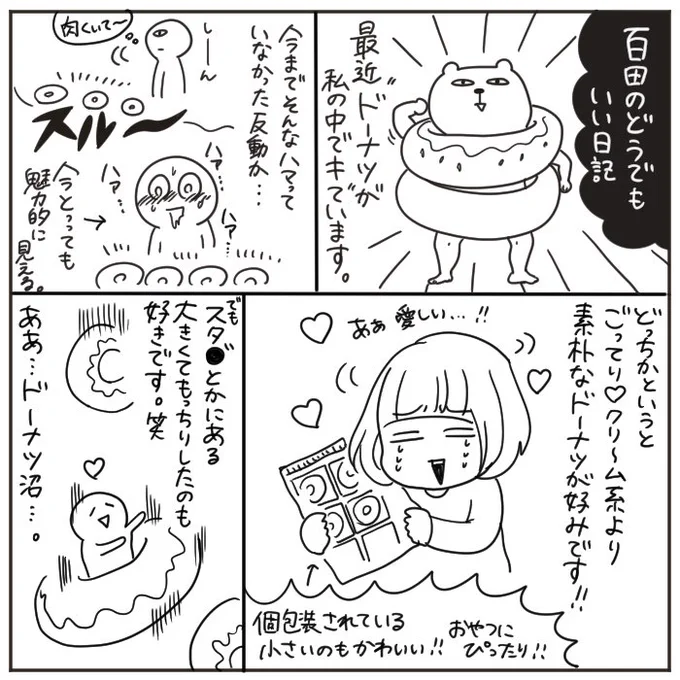 百田のどうでも
いい日記
最近"ドーナツ"が
私の中でキています。
今までそんなハマって
いなかった反動か…
しーん
肉くいて〜
スルー
ハァ…
ハァ…
ハァ…
ハァ…
今とっっても
魅力的に
見える。
どっちかというと
ごってり♡クリーム系より
素朴なドーナツが好みです!!
ああ 愛しい…!!
個包装されている
小さいのもかわいい!!
おやつに
ぴったり!!
でも
スタ●とかにある
大きくてもっちりしたのも
好きです。笑
ああ…ドーナツ沼…。